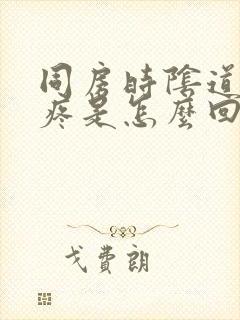 同房時陰道
疼是怎麼回
戈費朗